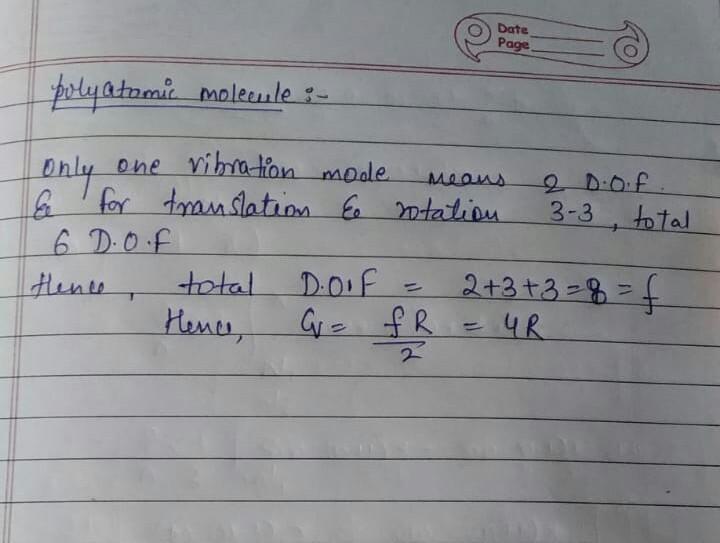 Date
Page
polyatomic molecule :-
only one vibration mode means 2 D.O.f.
& for translation & rotation 3-3, total
6 D.O.f
Hence, total D.O.F = 2+3+3=8=f
Hence, Cv = fR/2 = 4R